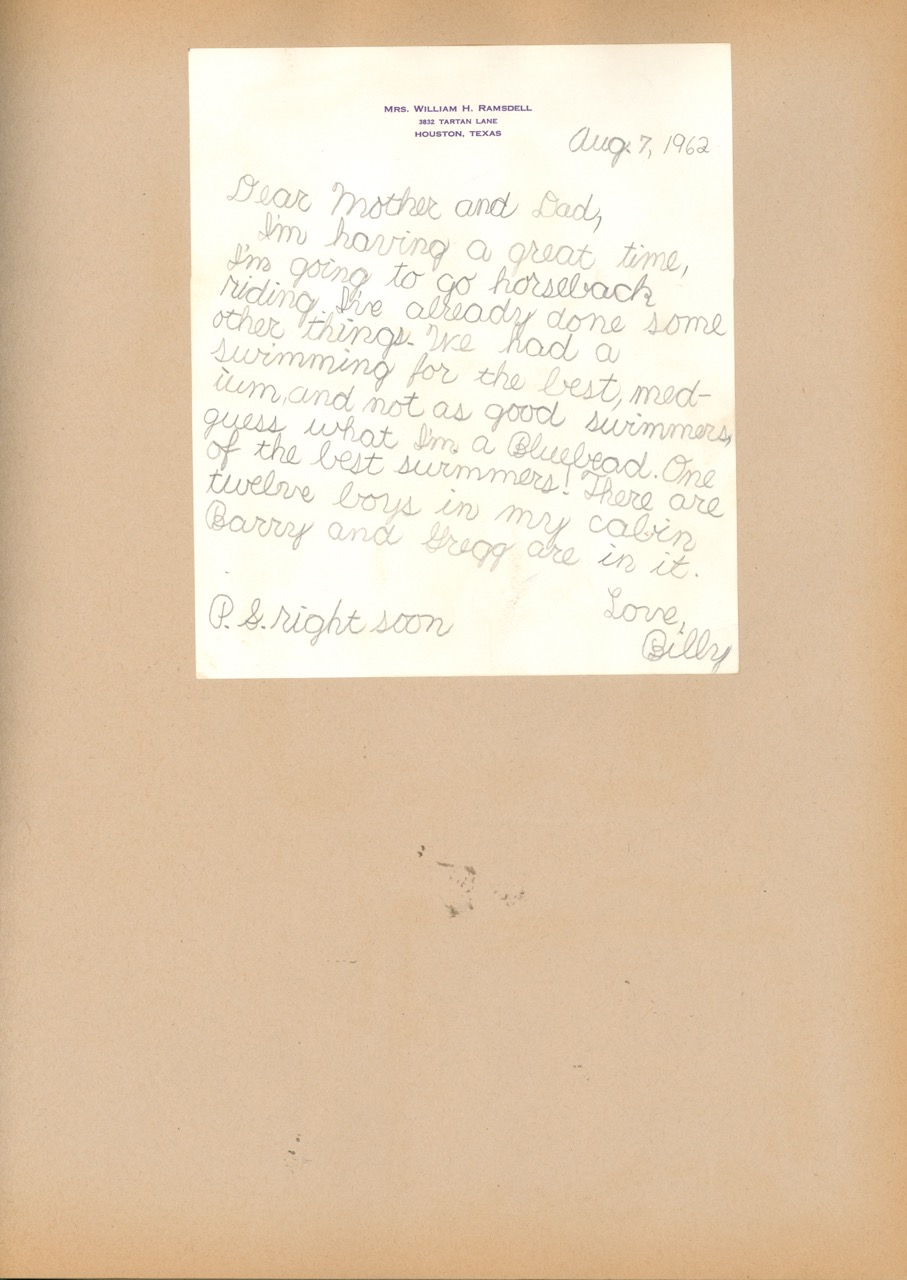 MRS. WILLIAM H. RAMSDELL
3832 TARTAN LANE
HOUSTON, TEXAS
Aug. 7, 1962
Dear Mother and Dad,
I'm having a great time,
I'm going to go horseback
riding. I've already done some
other things. We had a
swimming for the best, med-
ium, and not as good swimmers,
guess what I'm a Bluebead. One
of the best swimmers! There are
twelve boys in my cabin
Barry and Gregg are in it.
Love,
Billy
P. S. right soon